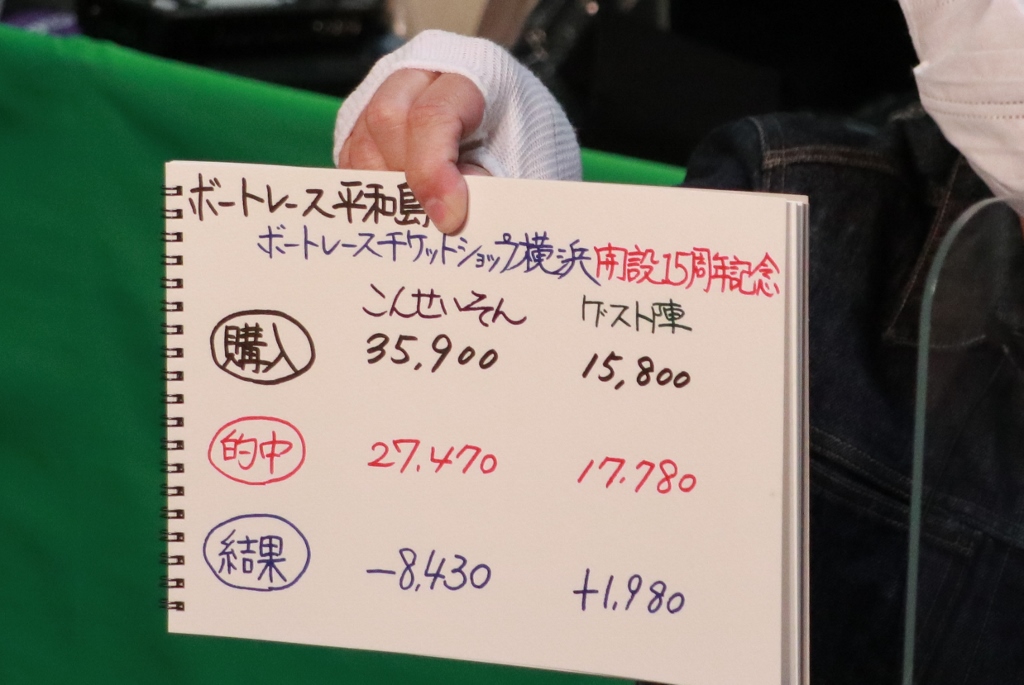 ボートレース平和島
ボートレースチケットショップ横浜開設15周年記念
こんせいそん ゲスト陣
購入 35,900 15,800
的中 27.470 17.780
結果 -8,430 +1,980